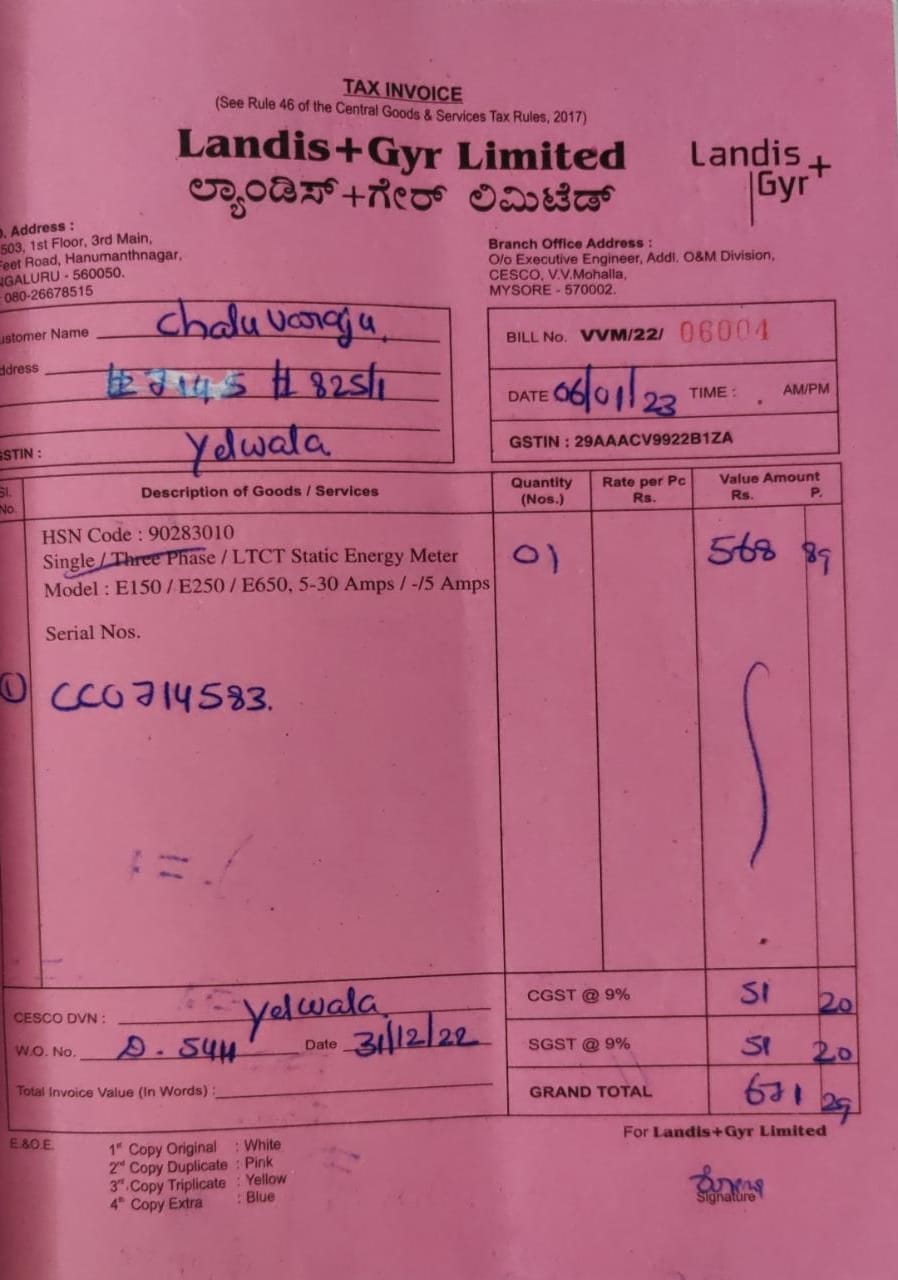 TAX INVOICE
(See Rule 46 of the Central Goods & Services Tax Rules, 2017)
Landis+Gyr Limited
ಲ್ಯಾಂಡಿಸ್+ಗೇರ್ ಲಿಮಿಟೆಡ್
Landis+
Gyr
Address :
503, 1st Floor, 3rd Main,
Road, Hanumanthnagar,
- 560050.
080-26678515
Branch Office Address :
O/o Executive Engineer, Addl. O&M Division,
CESCO, V.V.Mohalla,
MYSORE - 570002.
Name Chaluvaraju
# 825/1
Yelwala
BILL No. VVM/22/ 06004
DATE 06/01/23 TIME : AM/PM
GSTIN : 29AAACV9922B1ZA
No. Description of Goods / Services Quantity (Nos.) Rate per Pc Rs. Value Amount Rs. P.
HSN Code : 90283010
Single / Three Phase / LTCT Static Energy Meter 01 568 89
Model : E150 / E250 / E650, 5-30 Amps / -/5 Amps
Serial Nos.
① CC0714583.
CGST @ 9% 51 20
CESCO DVN : Yelwala
W.O. No. Date 31/12/22
SGST @ 9% 51 20
Total Invoice Value (In Words) :
GRAND TOTAL 671 29
E.&O.E.
1st Copy Original : White
2nd Copy Duplicate : Pink
3rd Copy Triplicate : Yellow
4th Copy Extra : Blue
For Landis+Gyr Limited
Signature